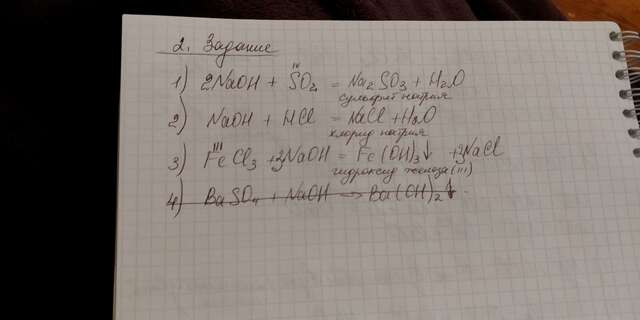 2. Задание
1) 2NaOH + SO₂ = Na₂SO₃ + H₂O
IV
сульфит натрия
2) NaOH + HCl = NaCl + H₂O
хлорид натрия
3) FeCl₃ + 3NaOH = Fe(OH)₃↓ + 3NaCl
III
гидроксид железа (III)
4) BaSO₄ + NaOH → Ba(OH)₂↓